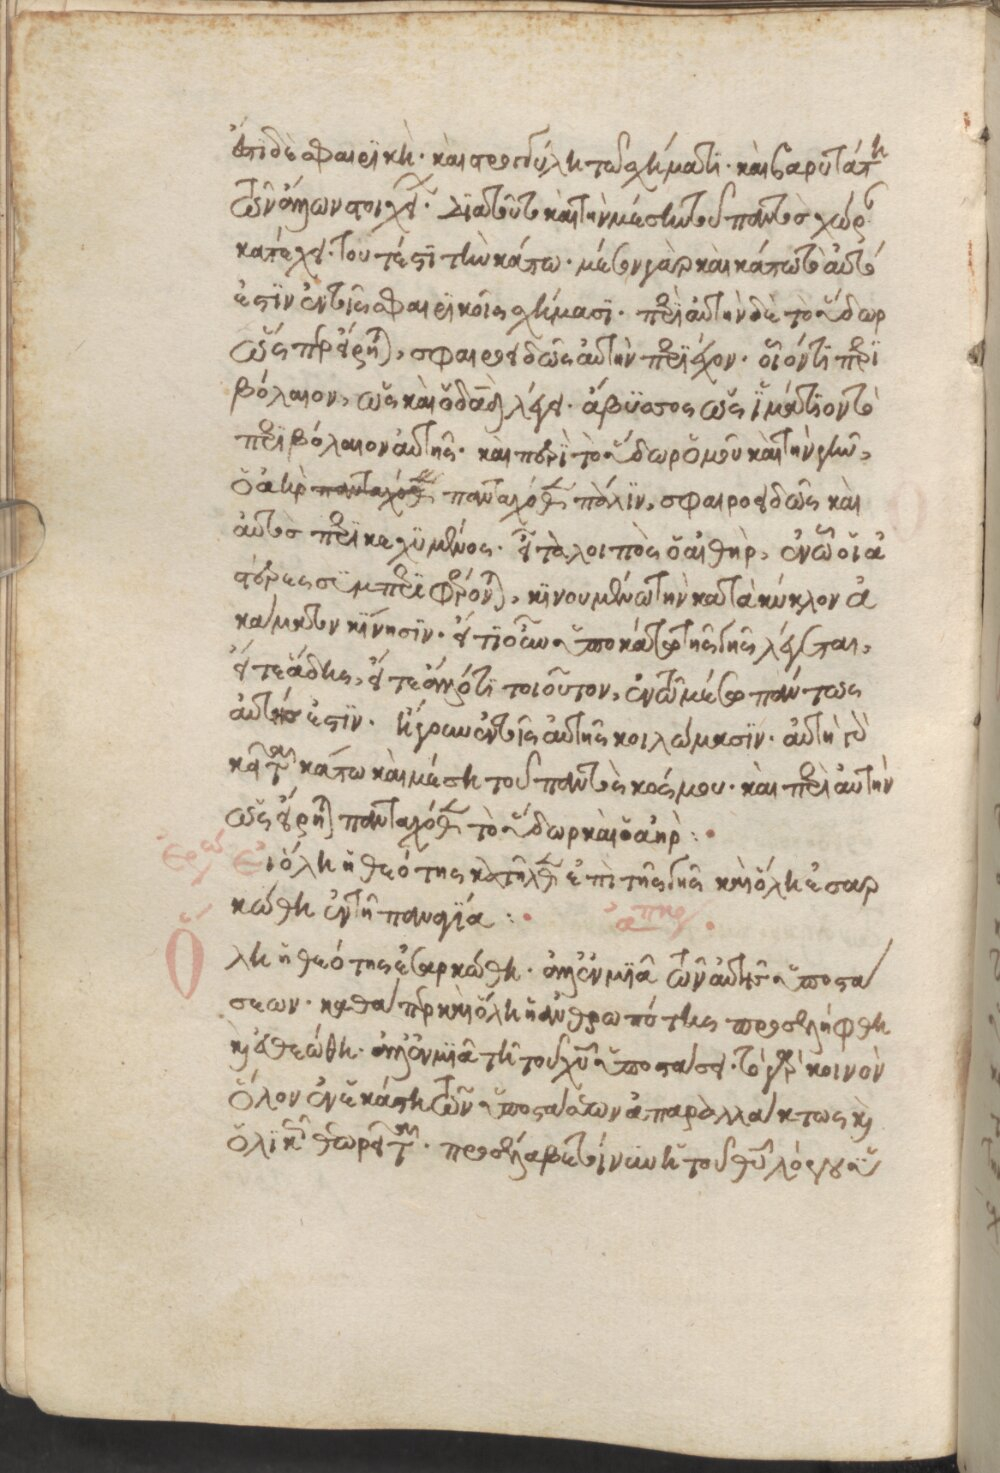 ἐπὶ δὲ σφαιρικὴ· καὶ στρογγύλη τῶ σχήματι· καὶ βαρυτάτη
τῶν ἄλλων στοιχείων· διὰ τοῦτο καὶ τὴν μέσην τοῦ παντὸς χώραν
κατέχει· τουτέστι τὴν κάτω· μέσον γὰρ καὶ κάτω τὸ αὐτό
ἐστιν ἐν τοῖς σφαιρικοῖς σχήμασι· περὶ αὐτὴν δὲ τὸ ὕδωρ
ὡς προείρηται, σφαιροειδῶς αὐτὴν περιέχον· οἱονεί τι περι
βόλαιον, ὡς καὶ ὁ δαδ λέγει· ἄβυσσος ὡς ἱμάτιον τὸ
περιβόλαιον αὐτῆς· καὶ περὶ τὸ ὕδωρ ὁμοῦ καὶ τὴν γῆν,
ὁ ἀὴρ πανταχόθεν πανταχόθεν πάλιν, σφαιροειδῶς καὶ
αὐτὸς περικεχυμένος· εἶτα λοιπὸς ὁ αἰθὴρ, ἐν ὧ οἱ ἀ
στέρες συμπεριφέρονται, κινούμενοι τὴν κατὰ κύκλον ἀ
κάματον κίνησιν· εἴ τι οὖν ὑποκάτω τῆς γῆς λέγεται,
εἴτε ἅδης, εἴτε ἄλλό τι τοιοῦτον, ἐν τῶ μέσω πάντως
αὐτῆς ἐστιν· ἤγουν ἐν τοῖς αὐτῆς κοιλώμασιν· αὐτὴ γὰρ
καὶ κάτω καὶ μέση τοῦ παντὸς κόσμου· καὶ περὶ αὐτὴν
ὡς εἴρηται πανταχόθεν τὸ ὕδωρ καὶ ὁ ἀὴρ :·
Ἐρώ Εἰ ὅλη ἡ θεότης κατῆλθεν ἐπὶ τῆς γῆς καὶ ὅλη ἐσαρ
κώθη ἐν τῆ παναγία :· ἀπκρ·
Ὅλη ἡ θεότης ἐσαρκώθη· ἀλλ' ἐν μιᾶ τῶν αὐτῆς ὑποστά
σεων· καθάπερ καὶ ὅλη ἡ ἀνθρωπότης προσελήφθη
καὶ ἐθεώθη· ἀλλ' ἐν μιᾶ τῆ τοῦ χυ ὑποστάσει· τὸ γὰρ κοινὸν
ὅλον ἐν ἑκάστη τῶν ὑποστάσεων ἀπαραλλάκτως καὶ
ὁλικῶς θεωρεῖται· προσελάβετο γοῦν ἡ τοῦ θυ λόγου ὑ